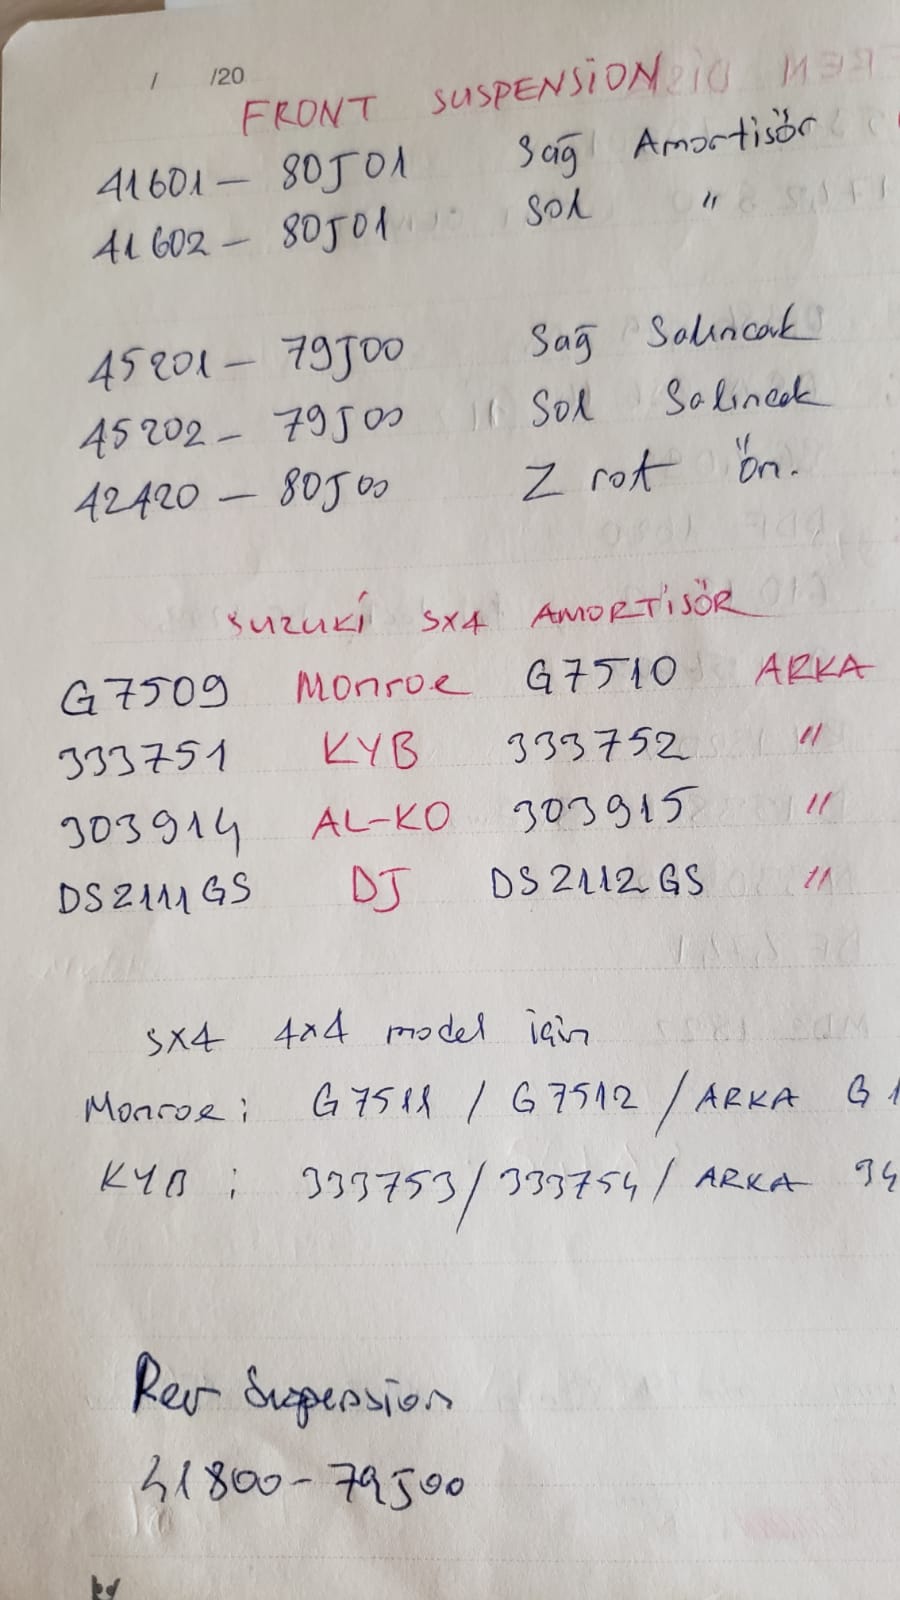 / /20
FRONT SUSPENSİON
41601 - 80J01 Sağ Amortisör
41602 - 80J01 Sol "
45201 - 79J00 Sağ Salıncak
45202 - 79J00 Sol Salıncak
42420 - 80J00 Z rot ön.
SUZUKİ SX4 AMORTİSÖR
G7509 Monroe G7510 ARKA
333751 KYB 333752 "
303914 AL-KO 303915 "
DS2111GS DJ DS2112GS "
SX4 4x4 model için
Monroe: G7511 / G7512 / ARKA G1
KYB : 333753/333754/ ARKA 34
Rear Suspension
41800-79J00